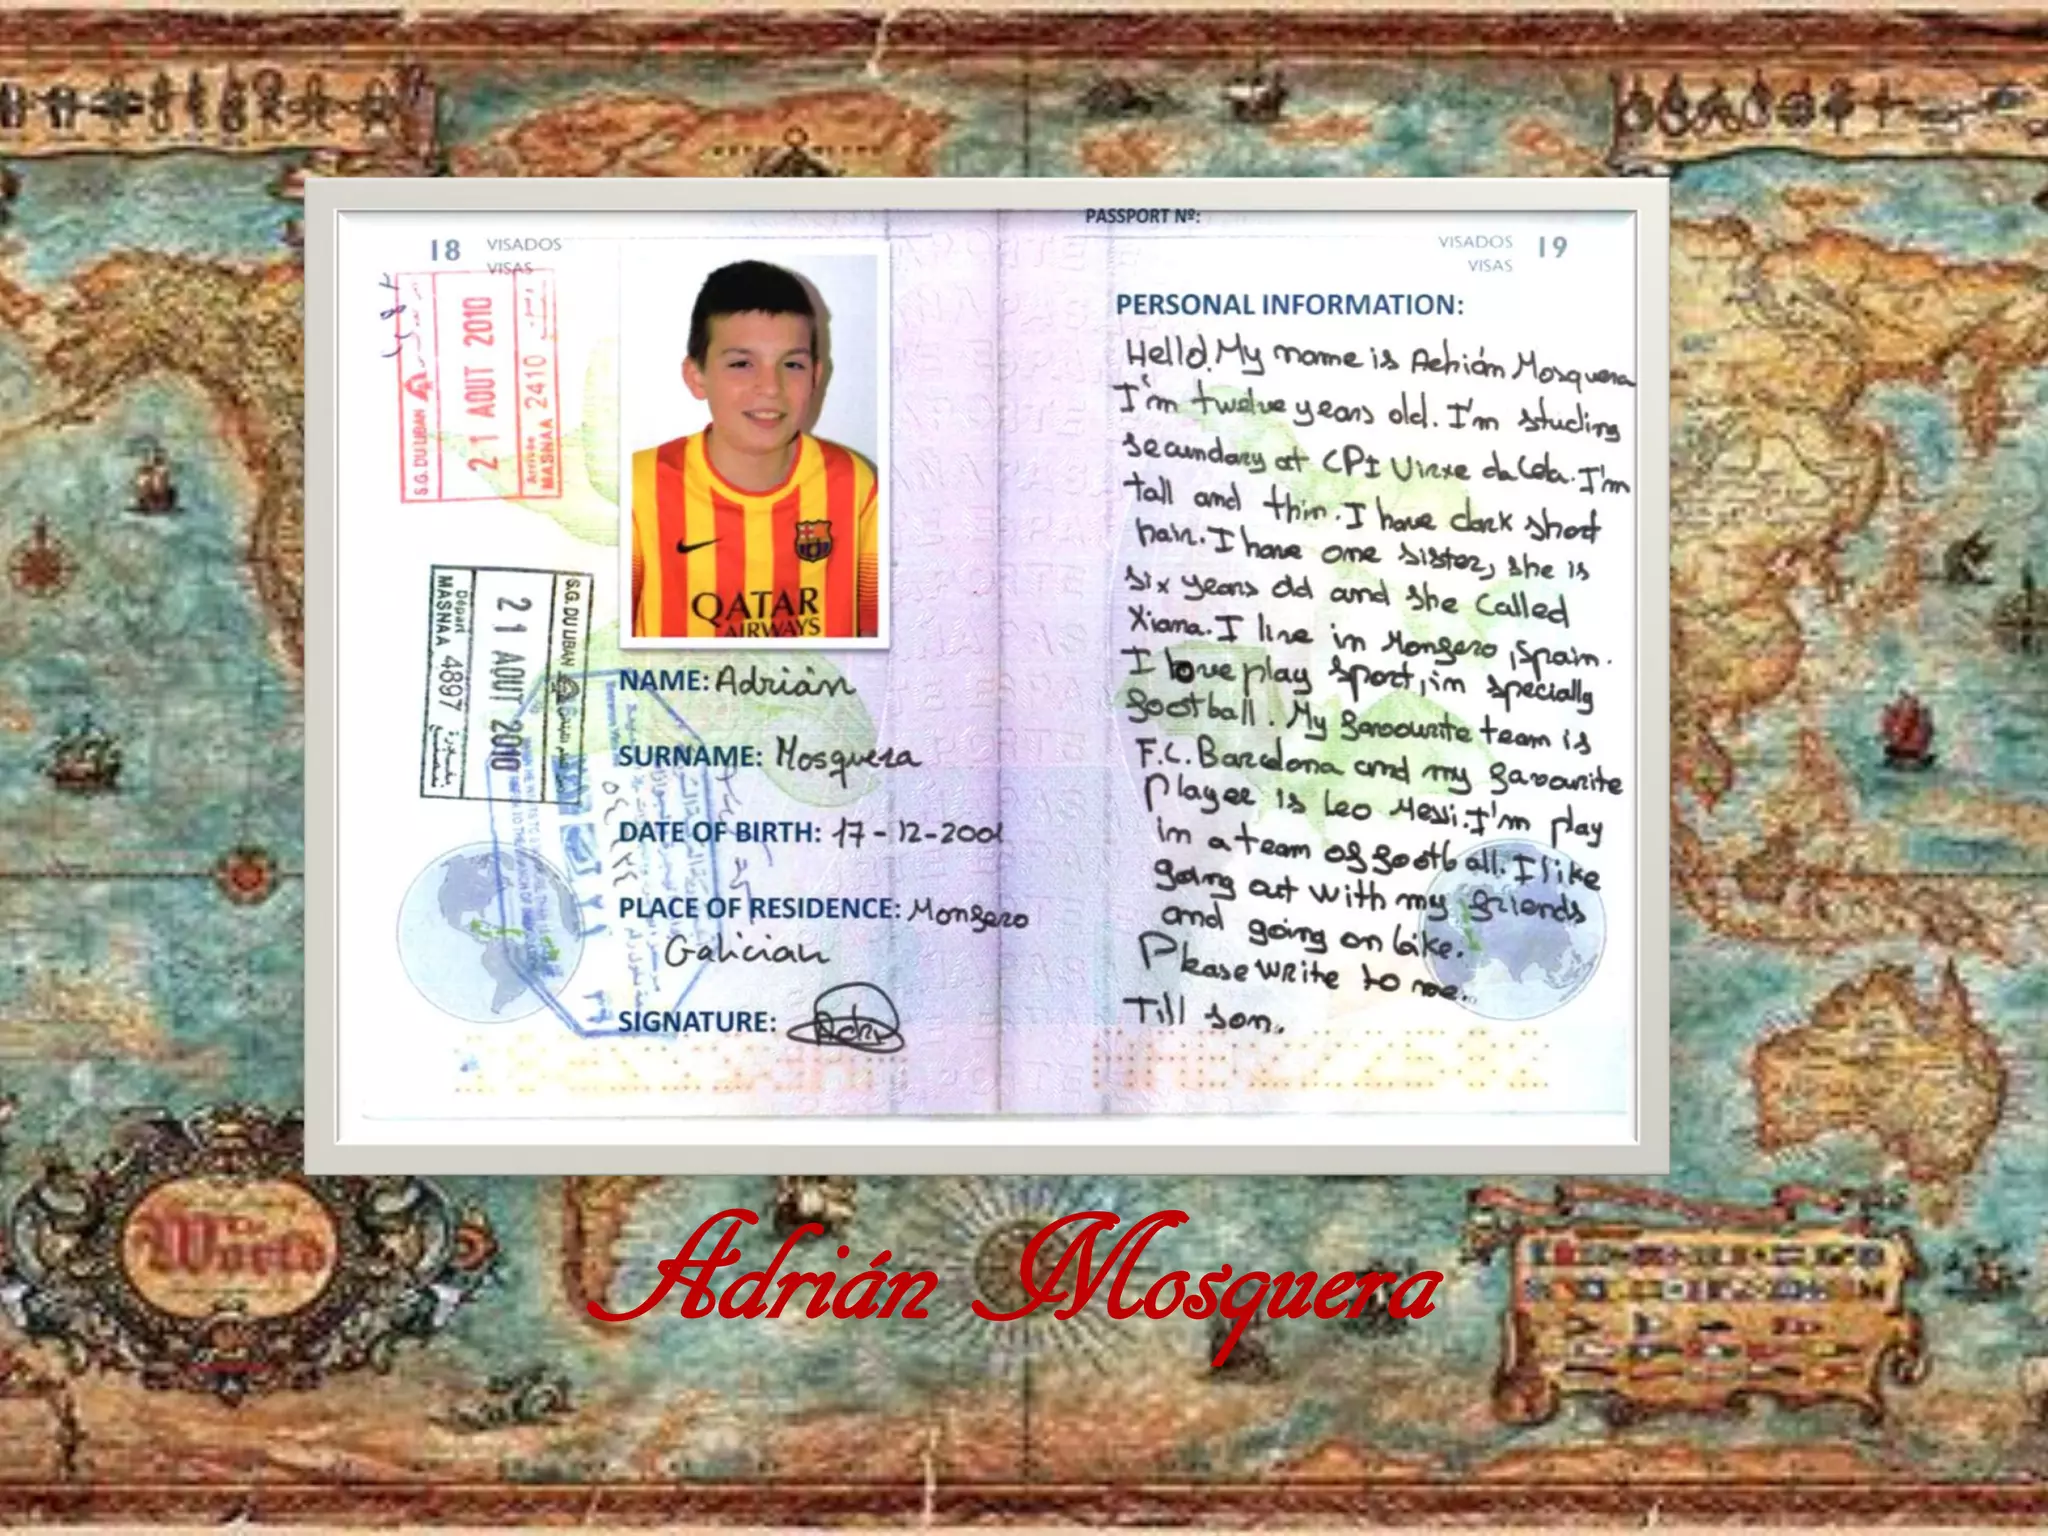 PASSPORT Nº:
18 VISADOS
VISAS
S.G. DU LIBAN
21 AOUT 2010
Arrivée
MASNAA 2410
QATAR
AIRWAYS
S.G. DU LIBAN
21 AOUT 2010
Départ
MASNAA 4897
NAME: Adrián
SURNAME: Mosquera
DATE OF BIRTH: 17-12-2001
PLACE OF RESIDENCE: Monfero
Galician
SIGNATURE: Adri
VISADOS 19
VISAS
PERSONAL INFORMATION:
Hello. My name is Adrián Mosquera
I'm twelve years old. I'm studing
secundary at CPI Virxe da Cela. I'm
tall and thin. I have dark short
hair. I have one sister, she is
six years old and she called
Xiana. I live in Monfero, Spain.
I love play sport, in specially
football. My favourite team is
F.C. Barcelona and my favourite
player is Leo Messi. I'm play
in a team of football. I like
going out with my friends
and going on bike.
Please write to me.
Till son.
The World
Adrián Mosquera